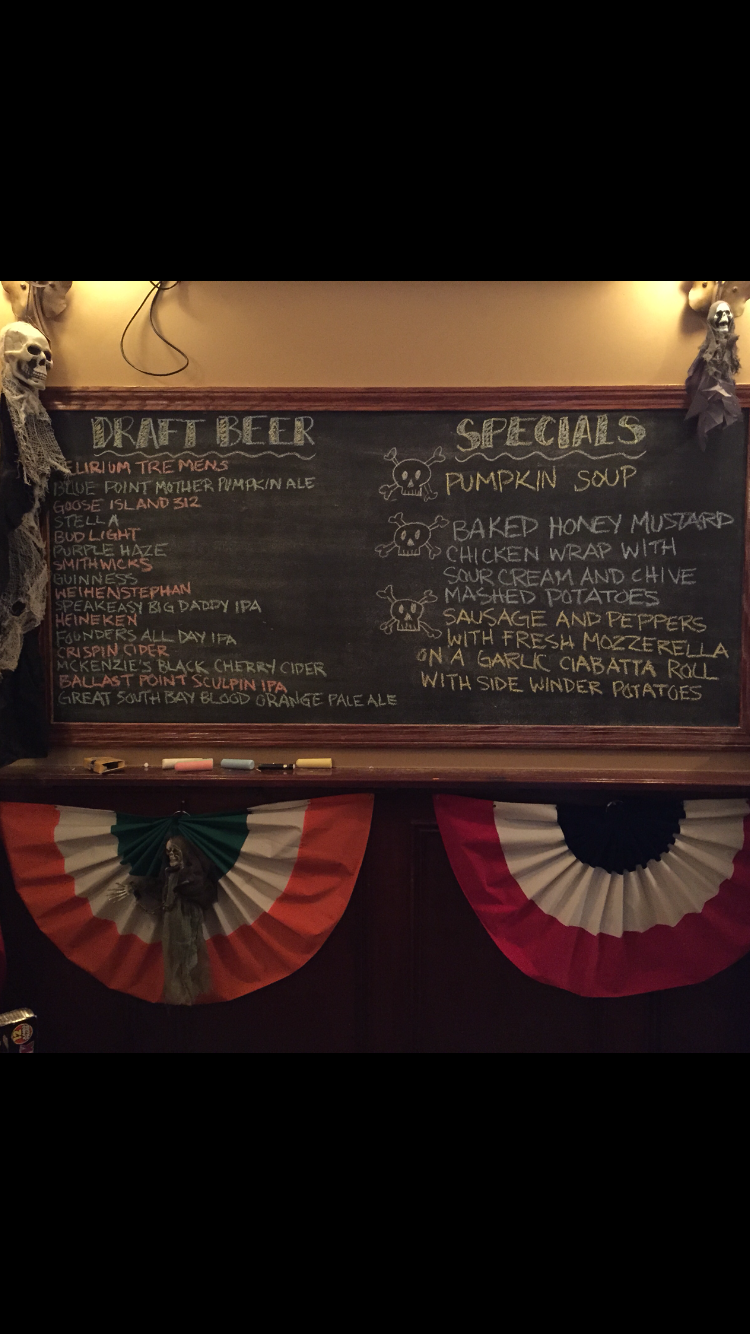 DRAFT BEER
DELIRIUM TREMENS
BLUE POINT MOTHER PUMPKIN ALE
GOOSE ISLAND 312
STELLA
BUD LIGHT
PURPLE HAZE
SMITHWICKS
GUINNESS
WEIHENSTEPHAN
SPEAKEASY BIG DADDY IPA
HEINEKEN
FOUNDERS ALL DAY IPA
CRISPIN CIDER
MCKENZIE'S BLACK CHERRY CIDER
BALLAST POINT SCULPIN IPA
GREAT SOUTH BAY BLOOD ORANGE PALE ALE
SPECIALS
PUMPKIN SOUP
BAKED HONEY MUSTARD
CHICKEN WRAP WITH
SOUR CREAM AND CHIVE
MASHED POTATOES
SAUSAGE AND PEPPERS
WITH FRESH MOZZERELLA
ON A GARLIC CIABATTA ROLL
WITH SIDE WINDER POTATOES